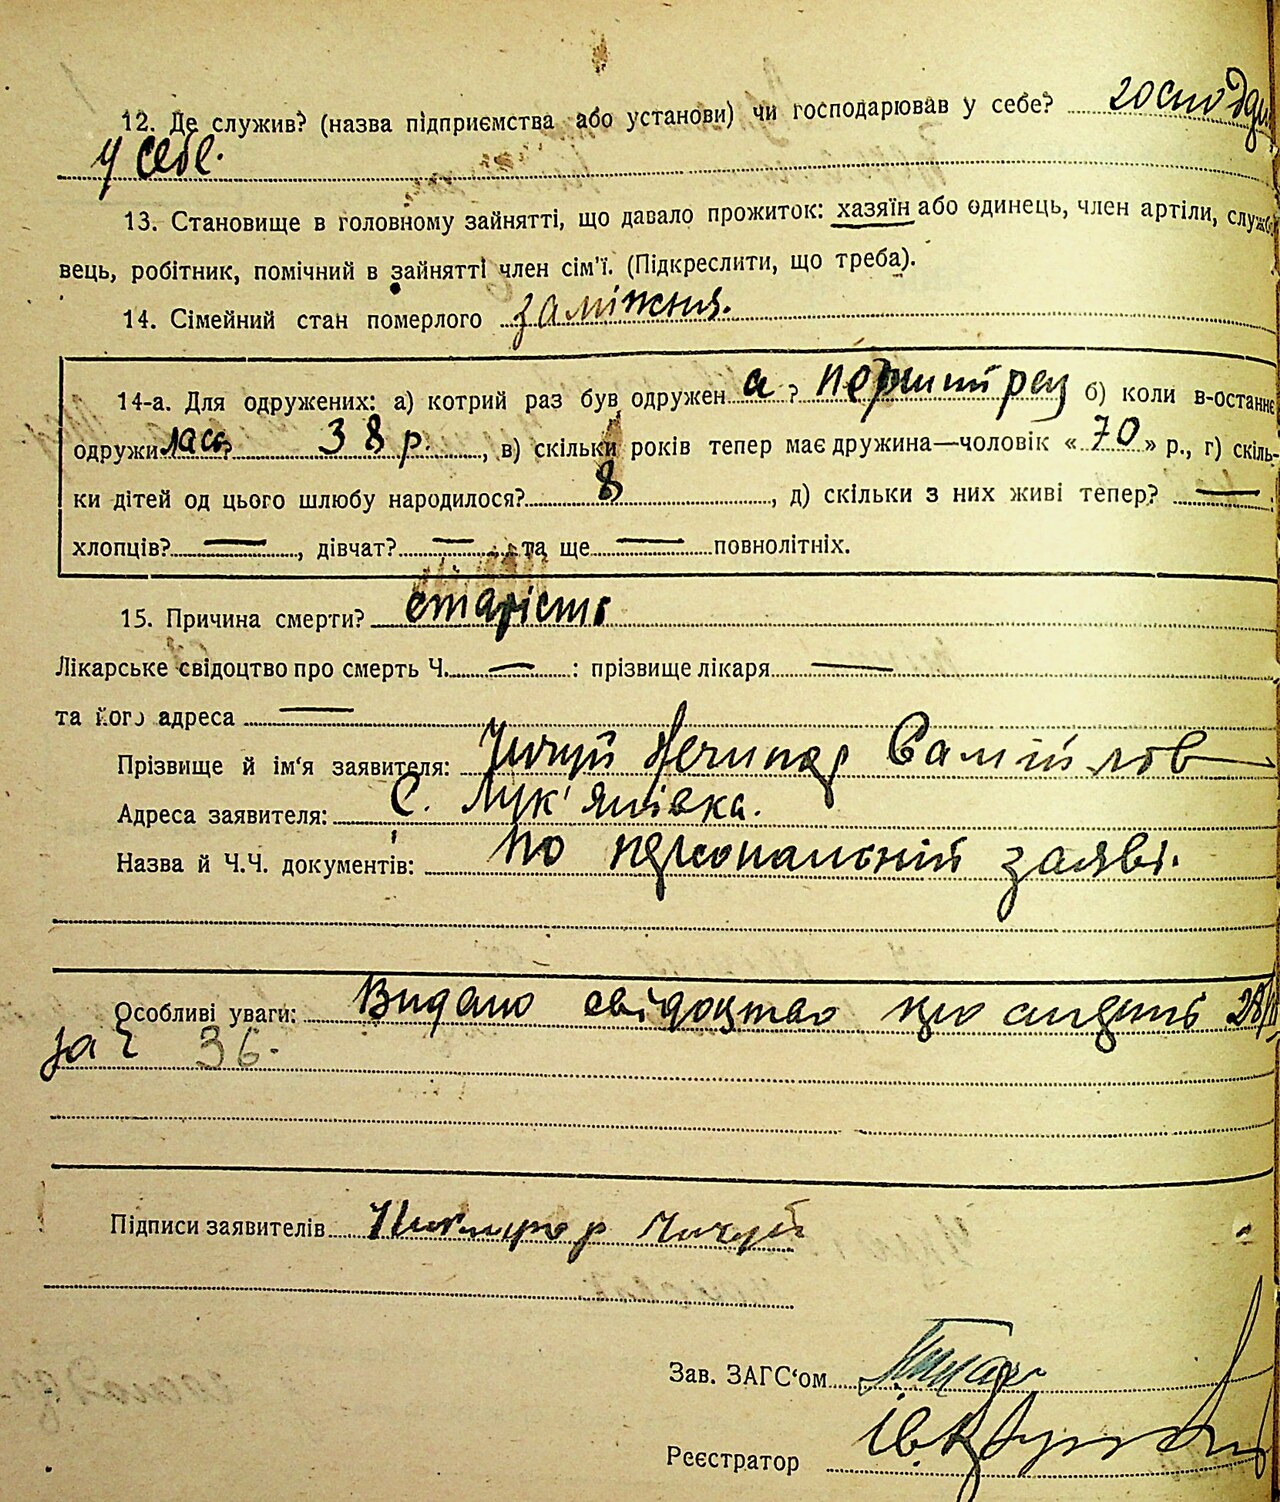 12. Де служив? (назва підприємства або установи) чи господарював у себе? господар
у себе.
13. Становище в головному зайнятті, що давало прожиток: хазяїн або одинець, член артіли, службо-
вець, робітник, помічний в зайнятті член сім'ї. (Підкреслити, що треба).
14. Сімейний стан померлого заміжня.
14-а. Для одружених: а) котрий раз був одружен а? перший раз б) коли в-останнє
одружилась? 38 р., в) скільки років тепер має дружина—чоловік «70» р., г) скіль-
ки дітей од цього шлюбу народилося? 8, д) скільки з них живі тепер? —:
хлопців? —, дівчат? —, та ще — повнолітніх.
15. Причина смерти? старість
Лікарське свідоцтво про смерть Ч. —: прізвище лікаря —
та його адреса —
Прізвище й ім'я заявителя: Чичуй Нечипор Самійлов
Адреса заявителя: С. Лук'янівка.
Назва й Ч.Ч. документів: по персональній заяві.
Особливі уваги: Видано свідоцтво про смерть 28/III
за Ч 36.
Підписи заявителів Чичуй
Зав. ЗАГС'ом
Реєстратор